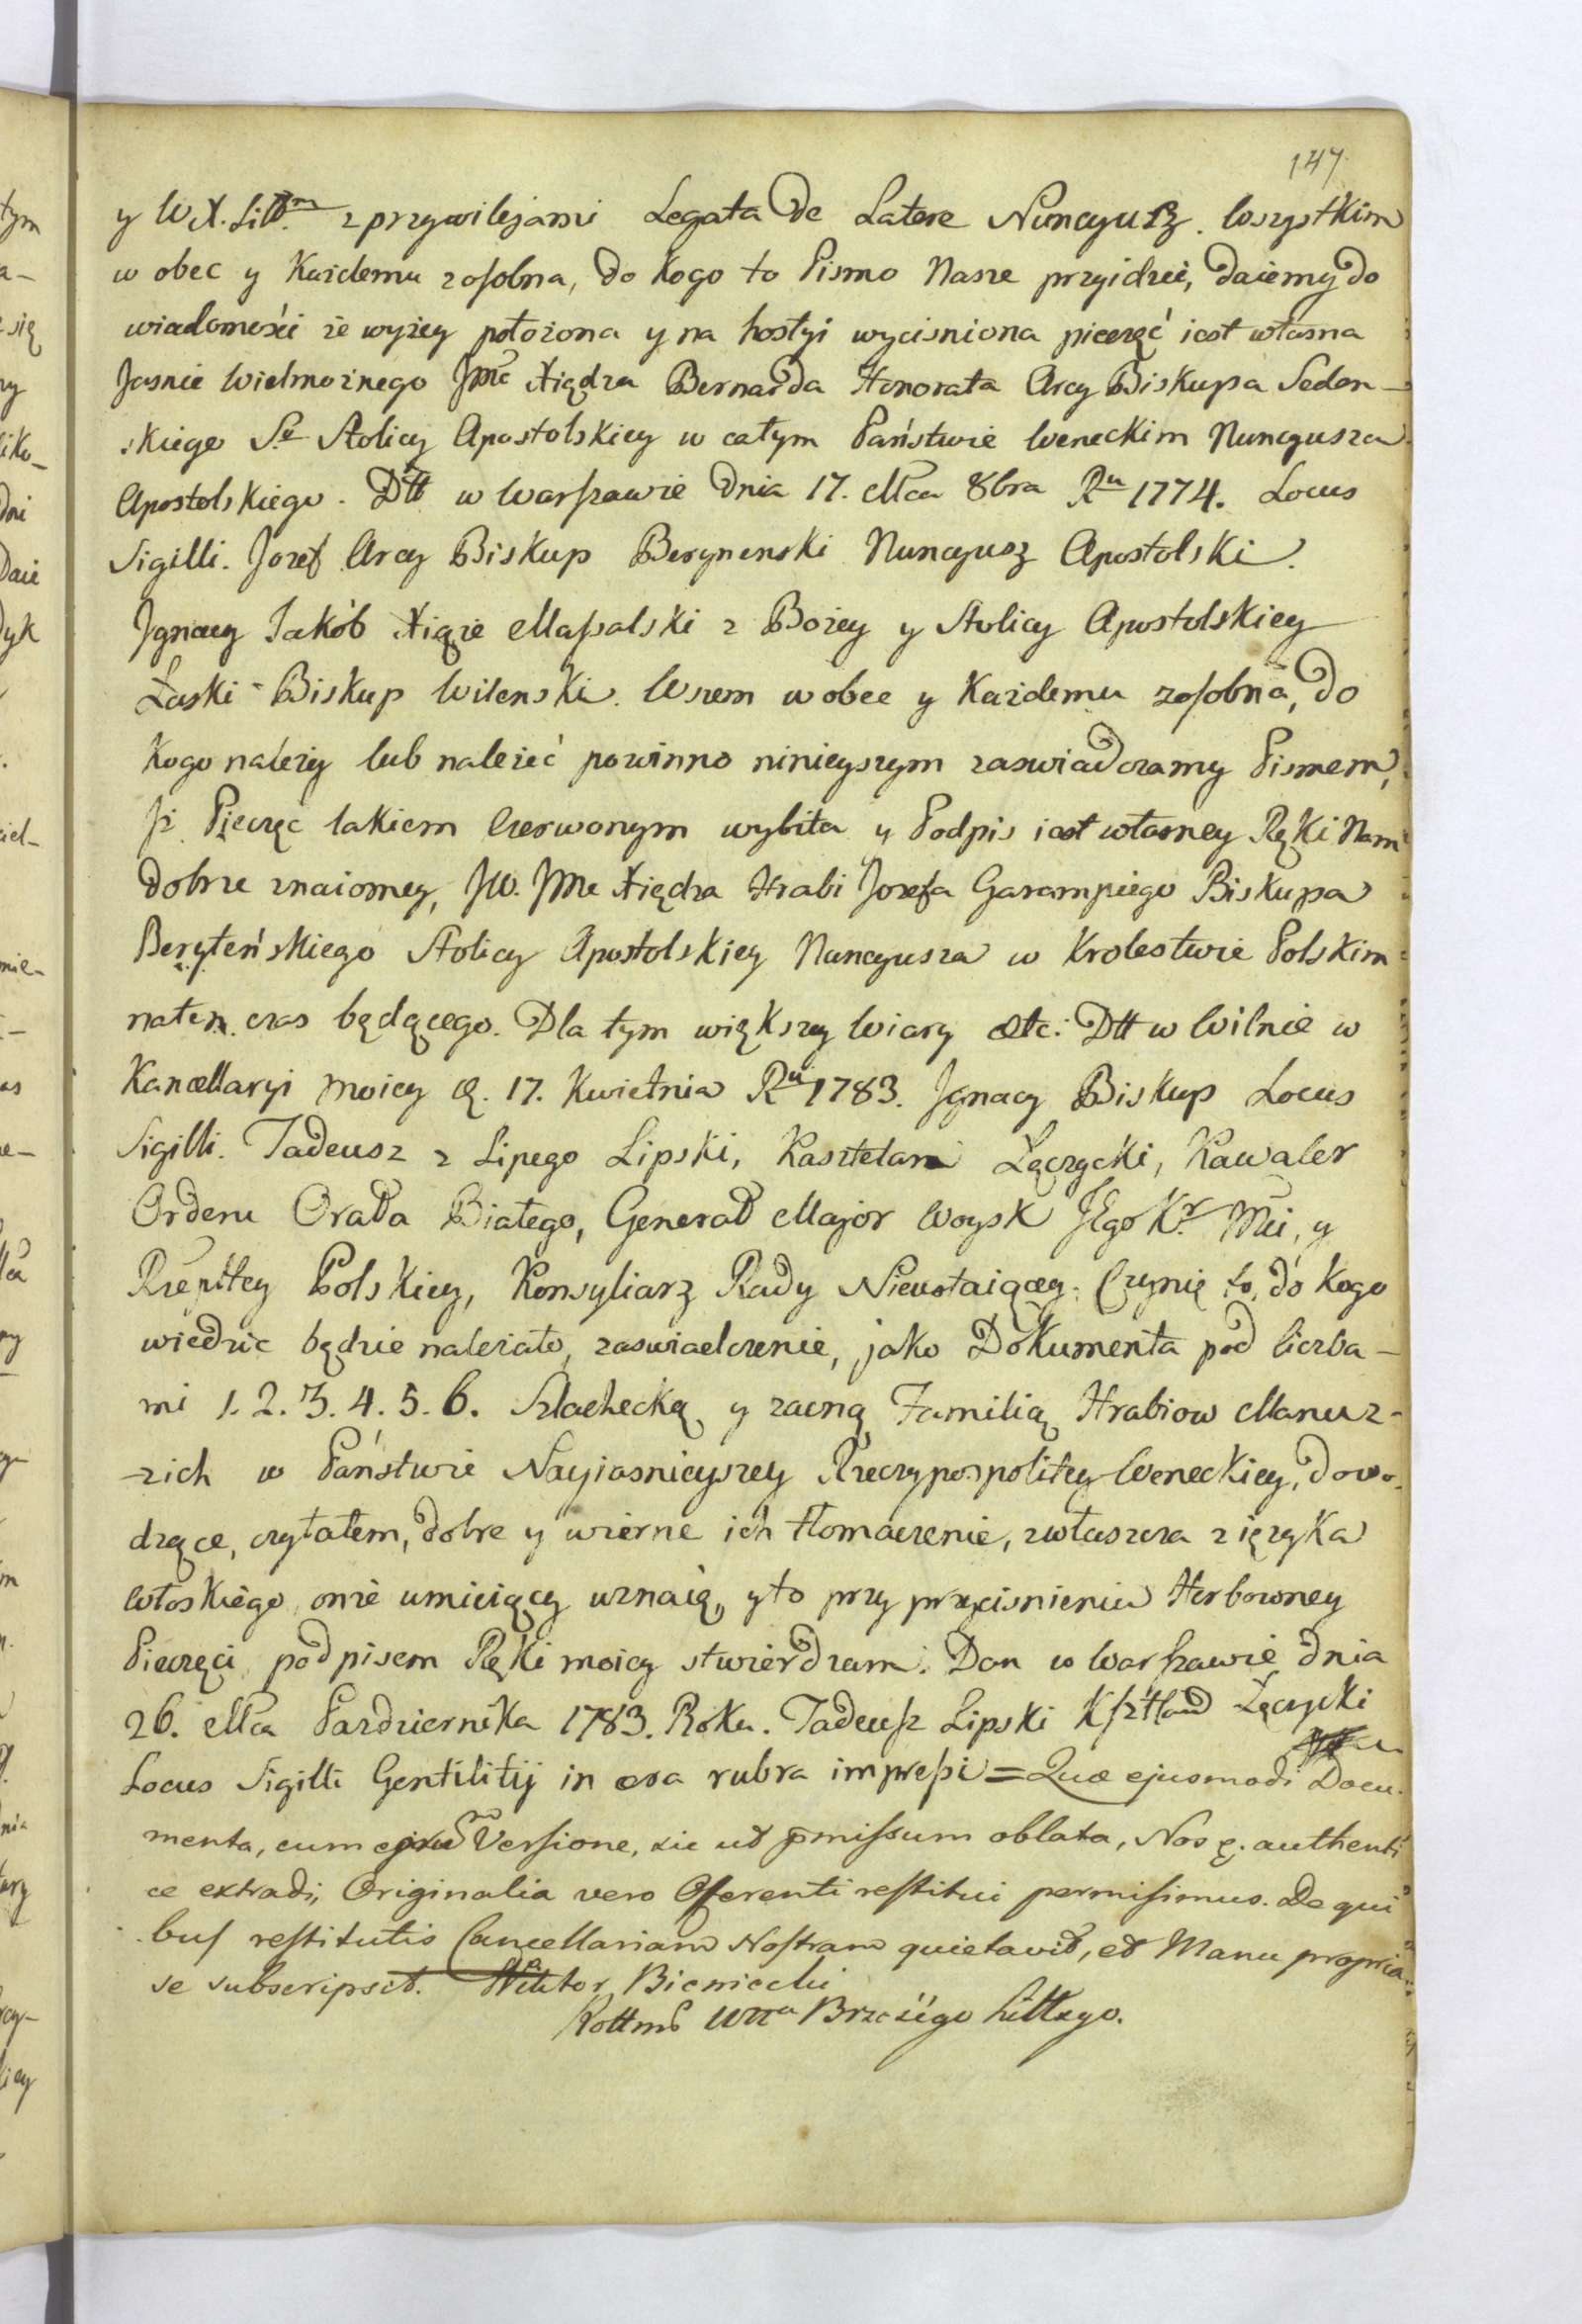 147.
y W. X. Litt.m z przywilejami Legata De Latere Nuncyusz. Wszystkim
w obec y Kazdemu zosobna, Do Kogo to Pismo Nasze przyidzie, Daiemy Do
wiadomości ze wyżey położona y na hostyi wycisniona pieczęć iest własna
Jasnie Wielmożnego Jmć Xiędza Bernarda Honorata Arcy Biskupa Sedon-
skiego Se Stolicy Apostolskiey w całym Państwie Weneckim Nuncyusza
Apostolskiego. Dtt w Warszawie Dnia 17. Mca 8bra Ru 1774. Locus
Sigilli. Jozef Arcy Biskup Berynenski Nuncyusz Apostolski.
Jgnacy Jakób Xiąze Massalski z Bożey y Stolicy Apostolskiey
Łaski Biskup Wilenski. Wszem w obec y Każdemu zosobna, Do
Kogo należy lub należeć powinno ninieyszym zaswiadczamy Pismem,
Jż Pięczęc lakiem Czerwonym wybita y Podpis iest własney Ręki Nam
Dobrze znaiomey, JW. Jme Xiędza Hrabi Jozefa Garampiego Biskupa
Beryteńskiego Stolicy Apostolskiey Nuncyusza w Krolestwie Polskim
naten czas będącego. Dla tym większey Wiary etc: Dtt w Wilnie w
Kancellaryi moiey D. 17. Kwietnia Ru 1783. Jgnacy Biskup Locus
Sigilli. Tadeusz z Lipego Lipski, Kasztelan Łęczycki, Kawaler
Orderu Orła Białego, Generał Major Woysk JEgo Kr Mci, y
Rzepltey Polskiey, Konsyliarz Rady Nieustaiącey. Czynię to, do Kogo
wiedzic będzie należało, zaswiadczenie, jako Dokumenta pod liczba-
mi 1. 2. 3. 4. 5. 6. Szlachecką y zacną Familią Hrabiow Manuz-
-zich w Państwie Nayiasnieyszey Rzeczypospolitey Weneckiey, dowo-
dzące, czytałem, dobre y wierne ich tłomaczenie, zwłaszcza z ięzyka
Włoskiego onże umieiący uznaię, y to przy przycisnieniu Herbowney
Pieczęci podpisem Ręki moiey stwierdzam. Dan w Warszawie dnia
26. Mca Pazdziernika 1783. Roku. Tadeusz Lipski Ksztlan Łęczycki
Locus Sigilli Gentilitij in cera rubra impressi = Quæ ejusmodi Docu-
menta, cum Versione, sic ut pmissum oblata, Nos authenti
ce extradi, Originalia vero Offerenti restitui permisimus. De qui
bus restitutis Cancellariam Nostram quietavit, et Manu propria
se subscripsit. Wiktor Bieniecki
Rottms Wtta Brześgo Littego.